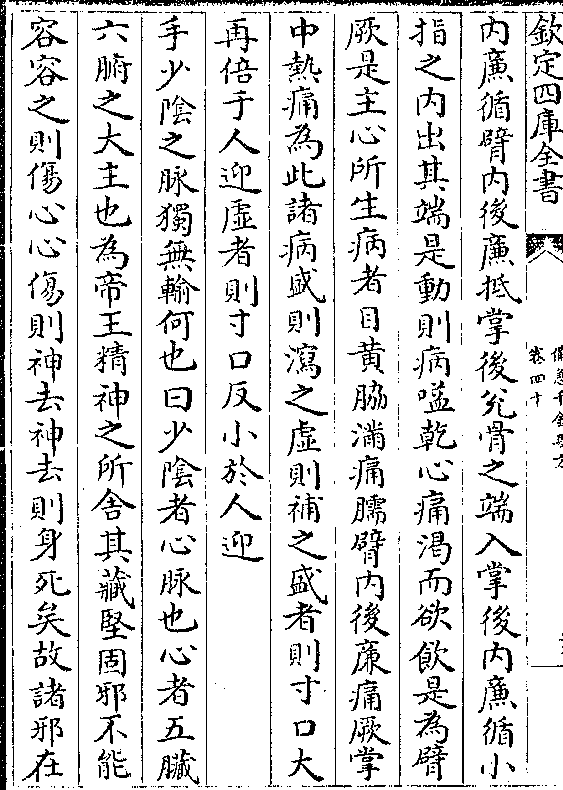 欽定四庫全書
備急千金要方
卷四十
內廉循臂內後廉抵掌後兊骨之端入掌後內廉循小
指之內出其端是動則病嗌乾心痛渴而欲飲是為臂
厥是主心所生病者目黃脇滿痛臑臂內後廉痛厥掌
中熱痛為此諸病盛則瀉之虛則補之盛者則寸口大
再倍于人迎虛者則寸口反小於人迎
手少陰之脉獨無輸何也曰少陰者心脉也心者五臟
六腑之大主也為帝王精神之所舍其藏堅固邪不能
容容之則傷心心傷則神去神去則身死矣故諸邪在